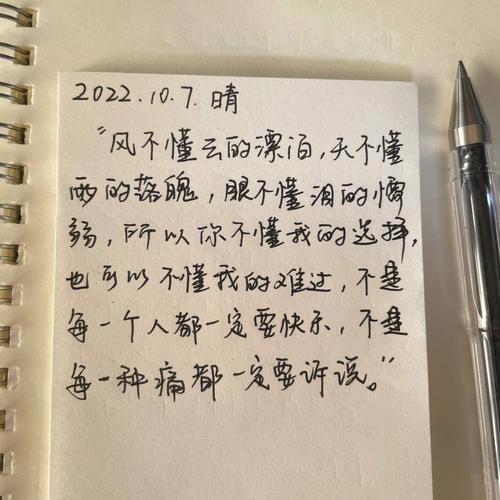 2022.10.7. 晴
“风不懂云的漂泊，天不懂
雨的落魄，眼不懂泪的懦
弱，所以你不懂我的选择，
也可以不懂我的难过，不是
每一个人都一定要快乐，不是
每一种痛都一定要诉说。”